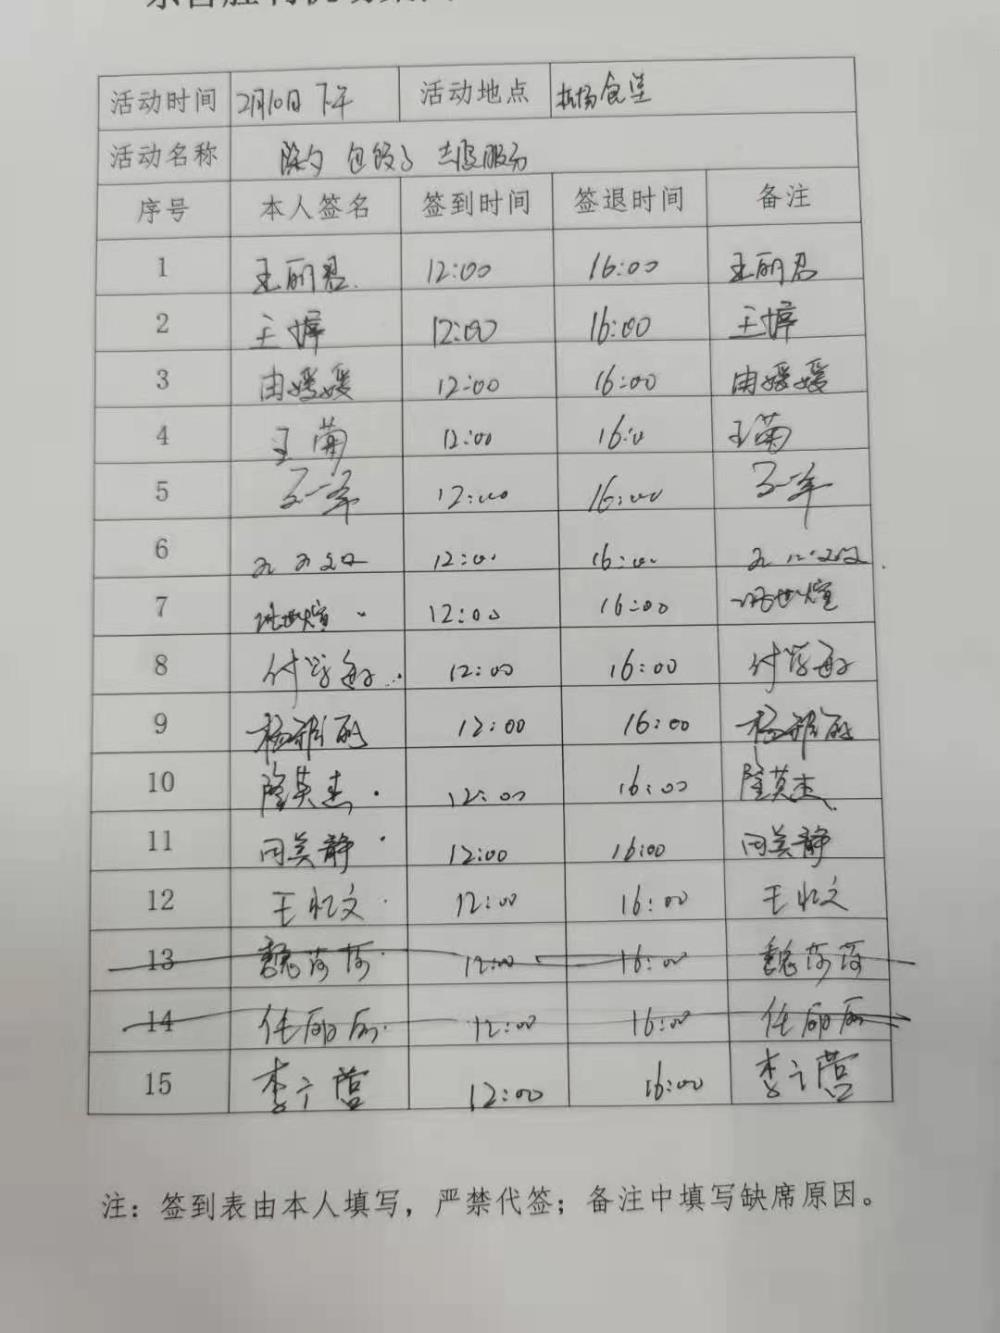 活动时间 2月10日 下午 活动地点 机场食堂
活动名称 除夕 包饺子 志愿服务
序号 本人签名 签到时间 签退时间 备注
1 王丽君 12:00 16:00 王丽君
2 王婷 12:00 16:00 王婷
3 由媛媛 12:00 16:00 由媛媛
4 王菊 12:00 16:0 王菊
5 12:00 16:00
6 12:00 16:00
7 12:00 16:00
8 付学敏 12:00 16:00 付学敏
9 杨雅丽 12:00 16:00 杨雅丽
10 隆英杰 12:00 16:00 隆英杰
11 闫美静 12:00 16:00 闫美静
12 王 文 12:00 16:00 王 文
13 魏莎莎 12:00 16:00 魏莎莎
14 任丽丽 12:00 16:00 任丽丽
15 李 营 12:00 16:00 李 营
注：签到表由本人填写，严禁代签；备注中填写缺席原因。